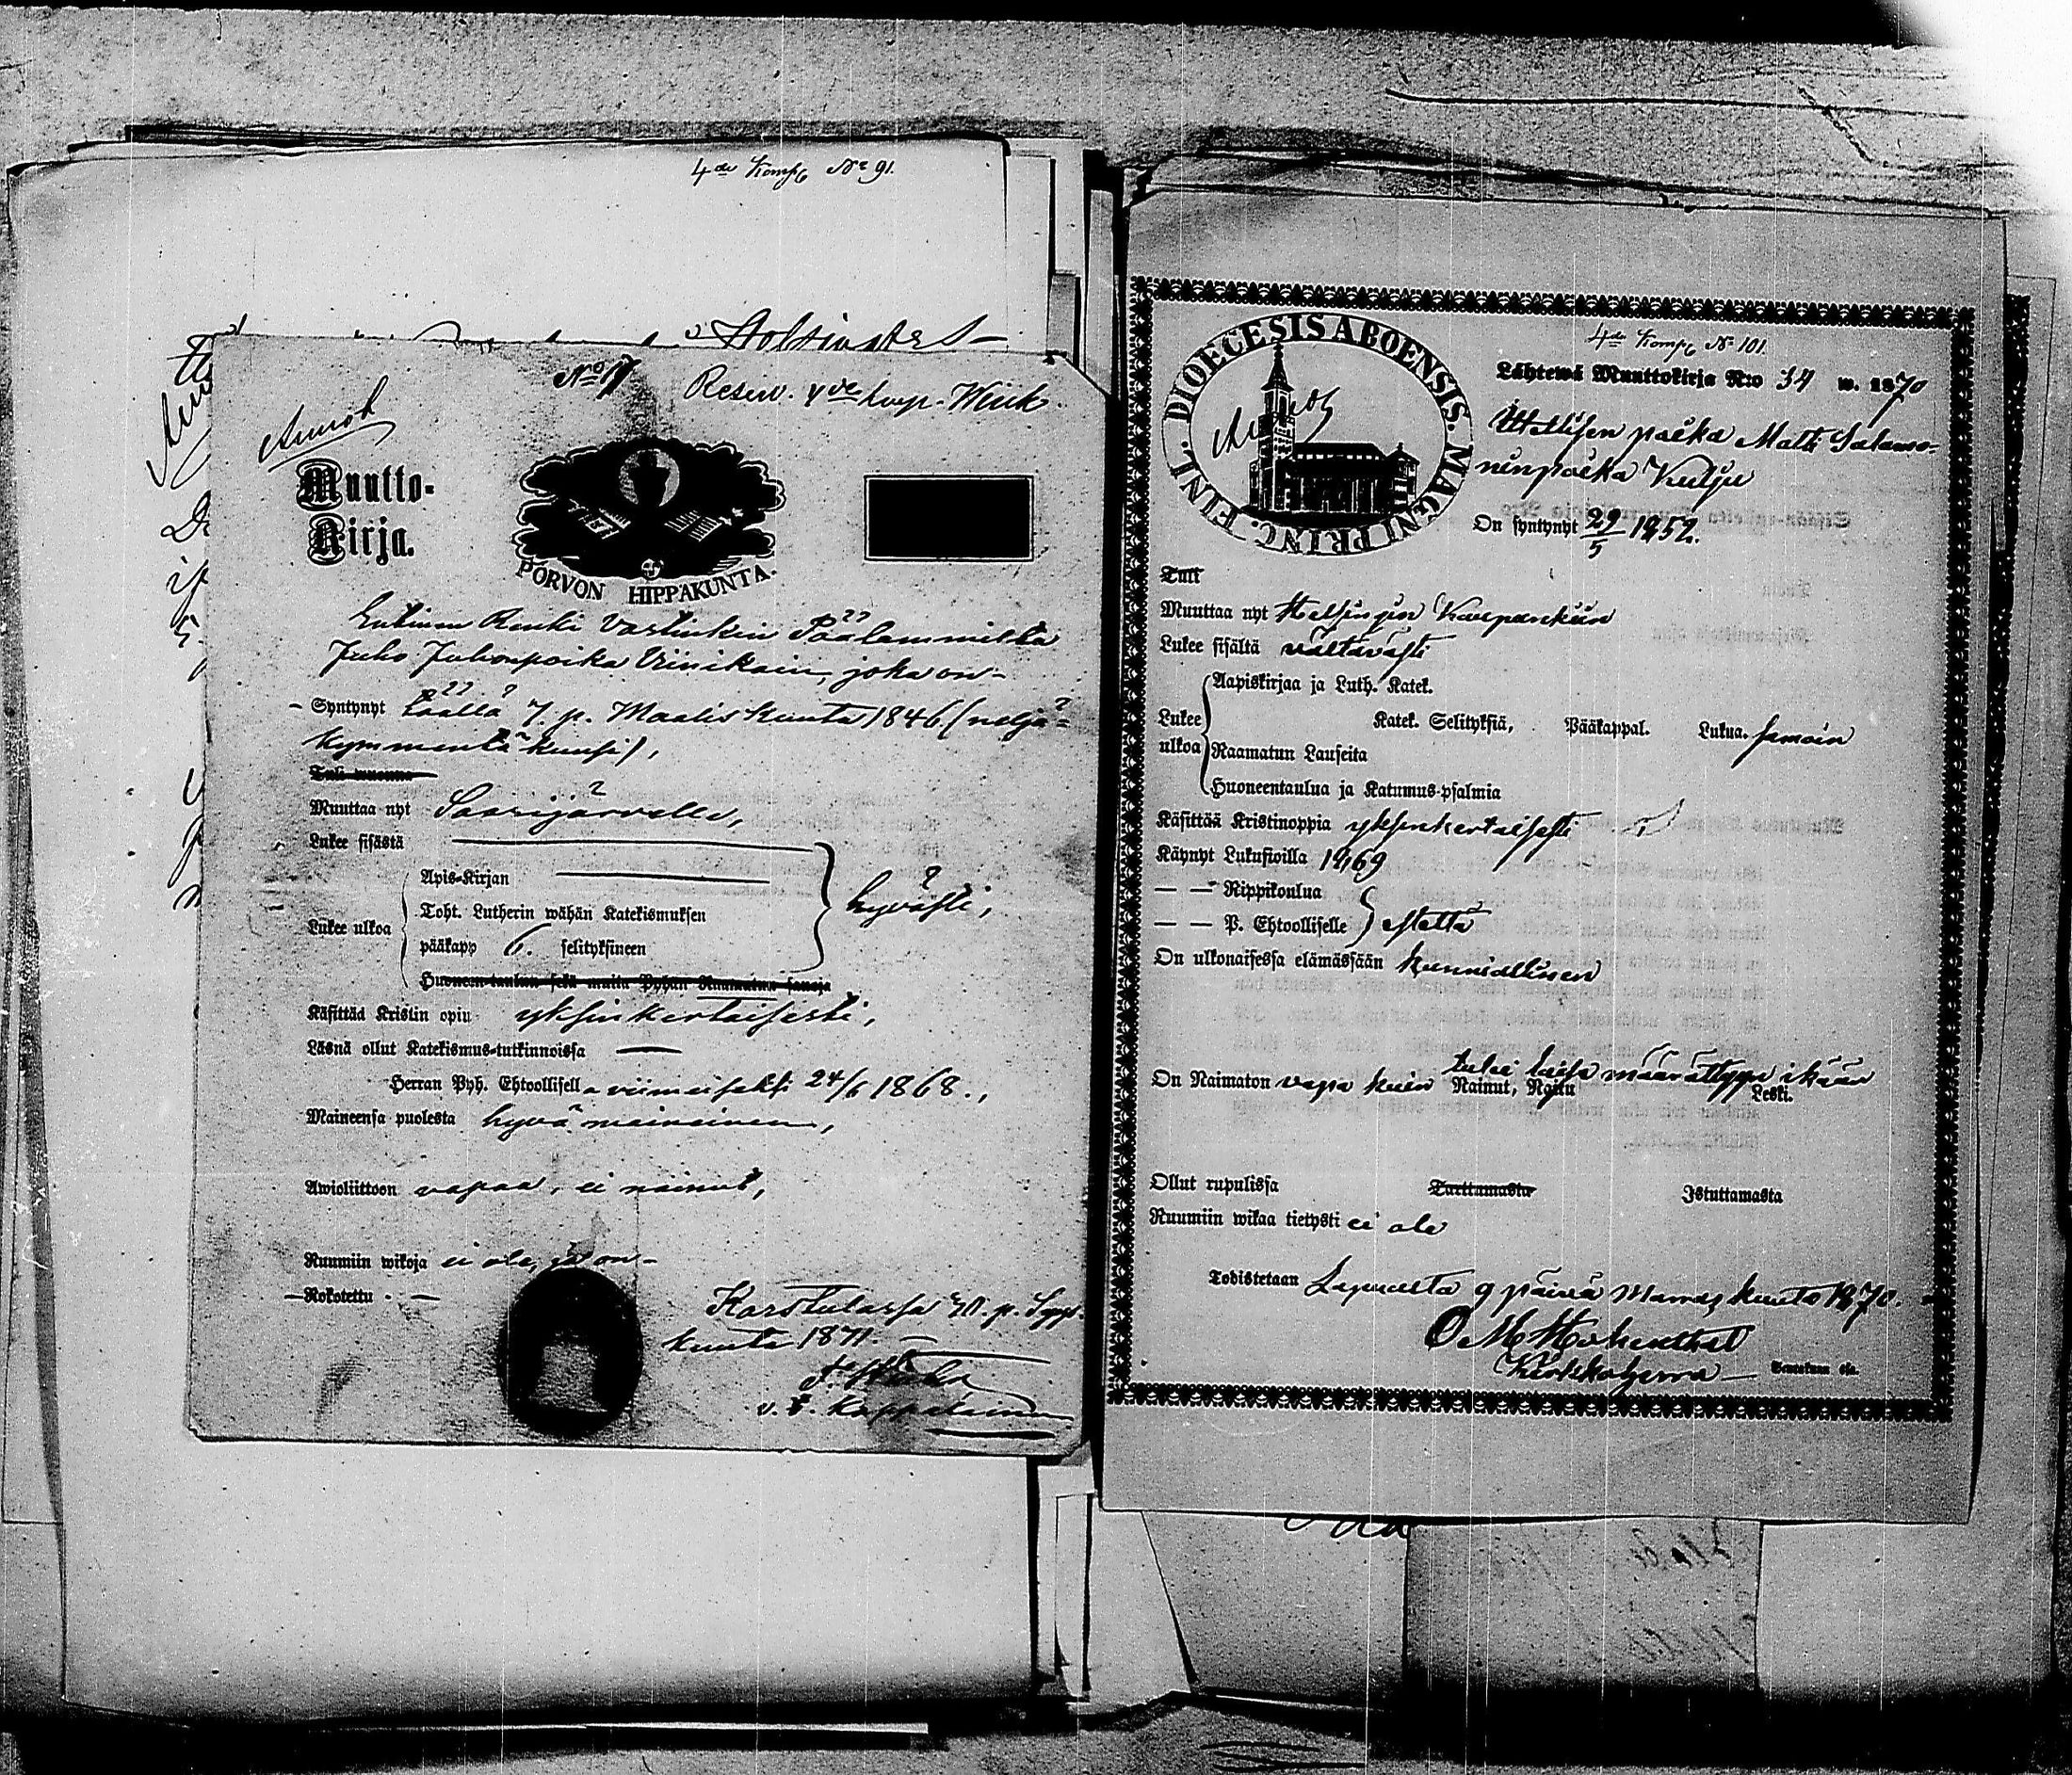 4de Komp No 91.
No 17
Reserv. 4de komp. Wiik.
Annot
Muutto-
Kirja.
PORVON HIPPAKUNTA.
Entinen Renki Vastinkin Päälammilta
Juho Juhonpoika Viinikain, joka on
Syntynyt täällä 7. p. Maaliskuuta 1846 (neljä-
kymmentä kuusi),
Tuli wuonna
Muuttaa nyt Saarijärvelle,
Lukee sisästä
Lukee ulkoa
Apis-Kirjan
Toht. Lutherin wähän Katekismuksen
pääkapp 6. selityksineen
hyvästi,
Huoneen-taulun sekä muita Pyhän Raamatun sanoja
Käsittää Kristin opin yksinkertaisesti,
Läsnä ollut Katekismus-tutkinnoissa
Herran Pyh. Ehtoollisella viimeiseksi 24/6 1868.,
Maineensa puolesta hyvä maineinen,
Awioliittoon vapaa, ei nainut,
Ruumiin wikoja ei ole, ja on
Rokotettu
Karstulassa
kuuta 1871.
v. t. Kappalainen
DIOECESIS ABOENSIS. MAGNI PRINC. FINL.
4de Komp No 101.
Lähtewä Muuttokirja N:o 34 w. 1870
Itsellisen poika Matti Salamo-
ninpoika Kulju
On syntynyt 29/5 1852.
Tuli
Muuttaa nyt Helsingin Kaupunkiin
Lukee sisältä välttävästi
Lukee
ulkoa
Aapiskirjaa ja Luth. Katek.
Katek. Selityksiä, Pääkappal. Lukua. samoin
Raamatun Lauseita
Huoneentaulua ja Katumus-psalmia
Käsittää Kristinoppia yksinkertaisesti
Käynyt Lukusioilla 1869
— — Rippikoulua
— — P. Ehtoollisella
On ulkonaisessa elämässään kunniallinen
On Naimaton vapa kuin tulee laissa määrättyyn ikään
Nainut, Naitu Leski.
Ollut rupulissa Tarttumasta Istuttamasta
Ruumiin wikaa tietysti ei ole
Todistetaan Lapualta 9 päivä Marraskuuta 1870.
Kirkkoherra